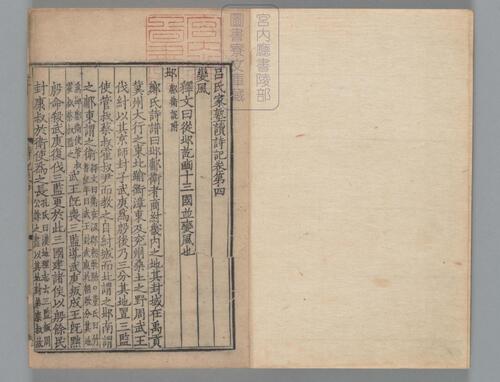 呂氏家塾讀詩記卷第四
變風
釋文曰從邶訖豳十三國並變風也
邶 鄘衛說附
鄭氏詩譜曰邶鄘衛者商紂畿内之地其封域在禹貢
冀州大行之東北踰衡漳東及兖州桑土之野周武王
伐紂以其京師封子武庚爲殷後乃三分其地置三監
使管叔蔡叔霍叔尹而教之自紂城而北謂之邶南謂
之鄘東謂之衛
武王旣喪三監導武庚叛成王旣黜
殷命殺武庚復伐三監更於此三國建諸侯以殷餘民
封康叔於衛使爲之長
宮内廳書陵部
圖書寮文庫藏